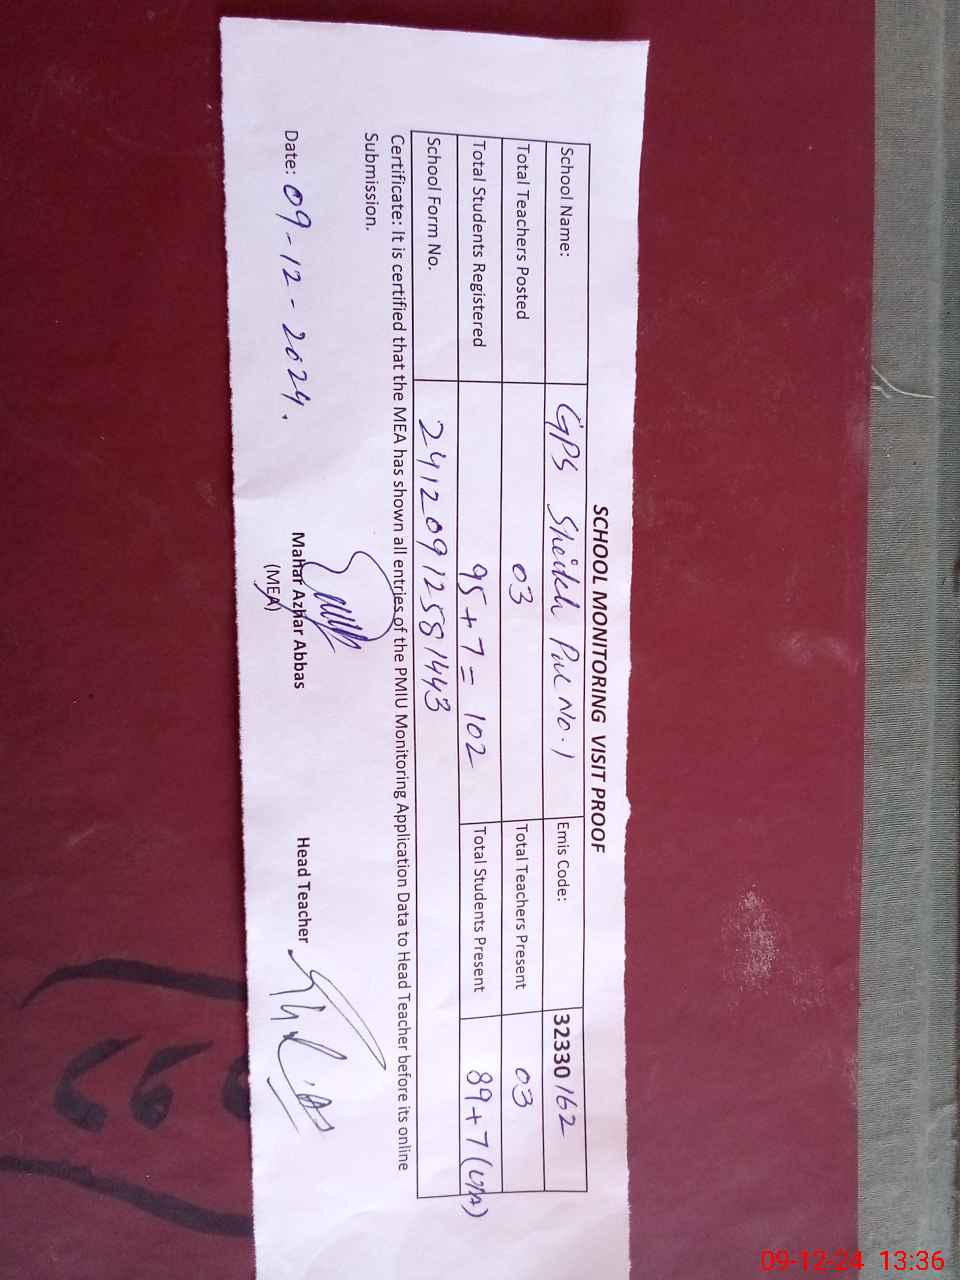 SCHOOL MONITORING VISIT PROOF
School Name: GPS Sheikh Pur No.1 Emis Code: 32330162
Total Teachers Posted 03 Total Teachers Present 03
Total Students Registered 95+7=102 Total Students Present 89+7
School Form No. 24120912581443
Certificate: It is certified that the MEA has shown all entries of the PMIU Monitoring Application Data to Head Teacher before its online
Submission.
Date: 09-12-2024. Mahar Azhar Abbas Head Teacher
(MEA)
09-12-24 13:36